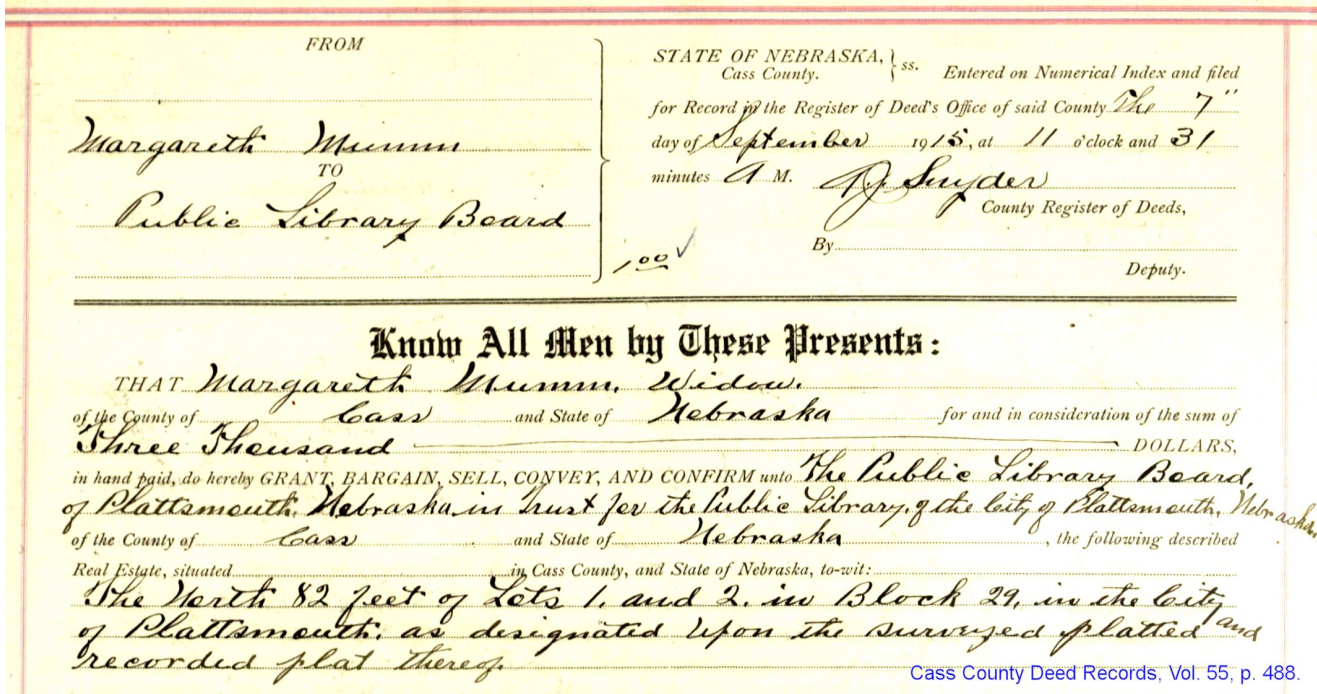 FROM
Margareth Mumm
TO
Public Library Board
1.00 ✓
STATE OF NEBRASKA, } ss.
Cass County.
Entered on Numerical Index and filed
for Record in the Register of Deed's Office of said County The 7"
day of September 1915, at 11 o'clock and 31
minutes A M. Snyder
County Register of Deeds,
By
Deputy.
Know All Men by These Presents:
THAT Margareth Mumm, Widow.
of the County of Cass and State of Nebraska for and in consideration of the sum of
Three Thousand DOLLARS,
in hand paid, do hereby GRANT, BARGAIN, SELL, CONVEY, AND CONFIRM unto The Public Library Board,
of Plattsmouth, Nebraska in Trust for the Public Library, of the City of Plattsmouth, Nebraska
of the County of Cass and State of Nebraska, the following described
Real Estate, situated in Cass County, and State of Nebraska, to-wit:
The North 82 feet of Lots 1, and 2, in Block 29, in the City
of Plattsmouth, as designated upon the surveyed platted and
recorded plat thereof.
Cass County Deed Records, Vol. 55, p. 488.